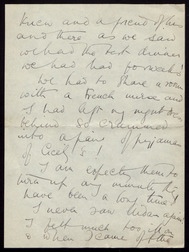 knew and a friend of hers
and there as we saw
we had the best dinner
we had had for weeks!
We had to share a room
with a French nurse and
I had left my night
behind so crammed
into a pair of pyjamas
of Cecily's!
I am expecting them to
turn up any minute they
have been a long time!
I never saw Susan again
I felt much
& when I came off the